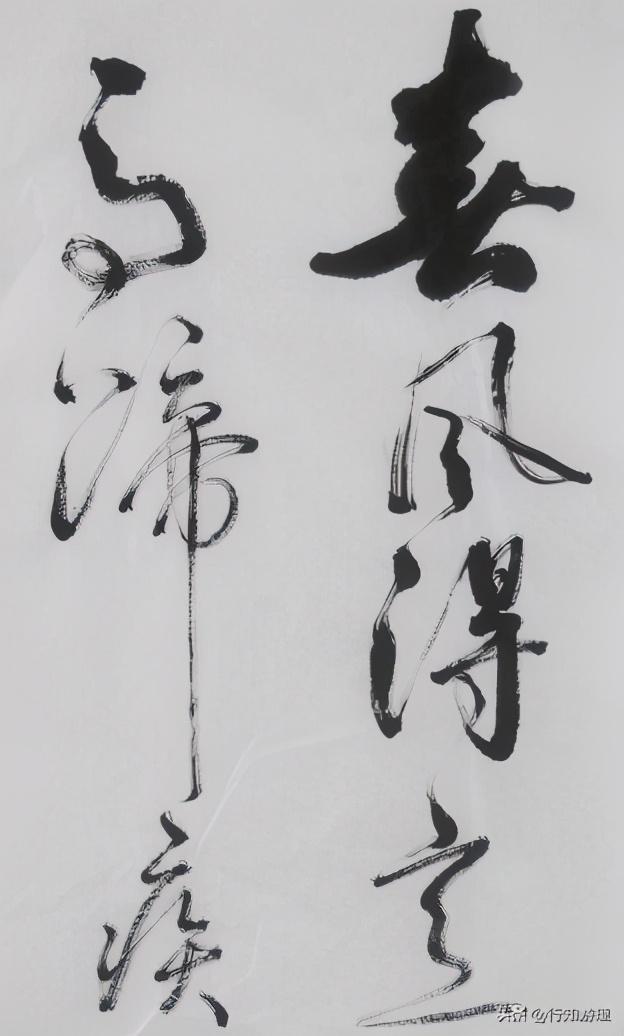 春风得意
马蹄疾
头条 @行知燎理